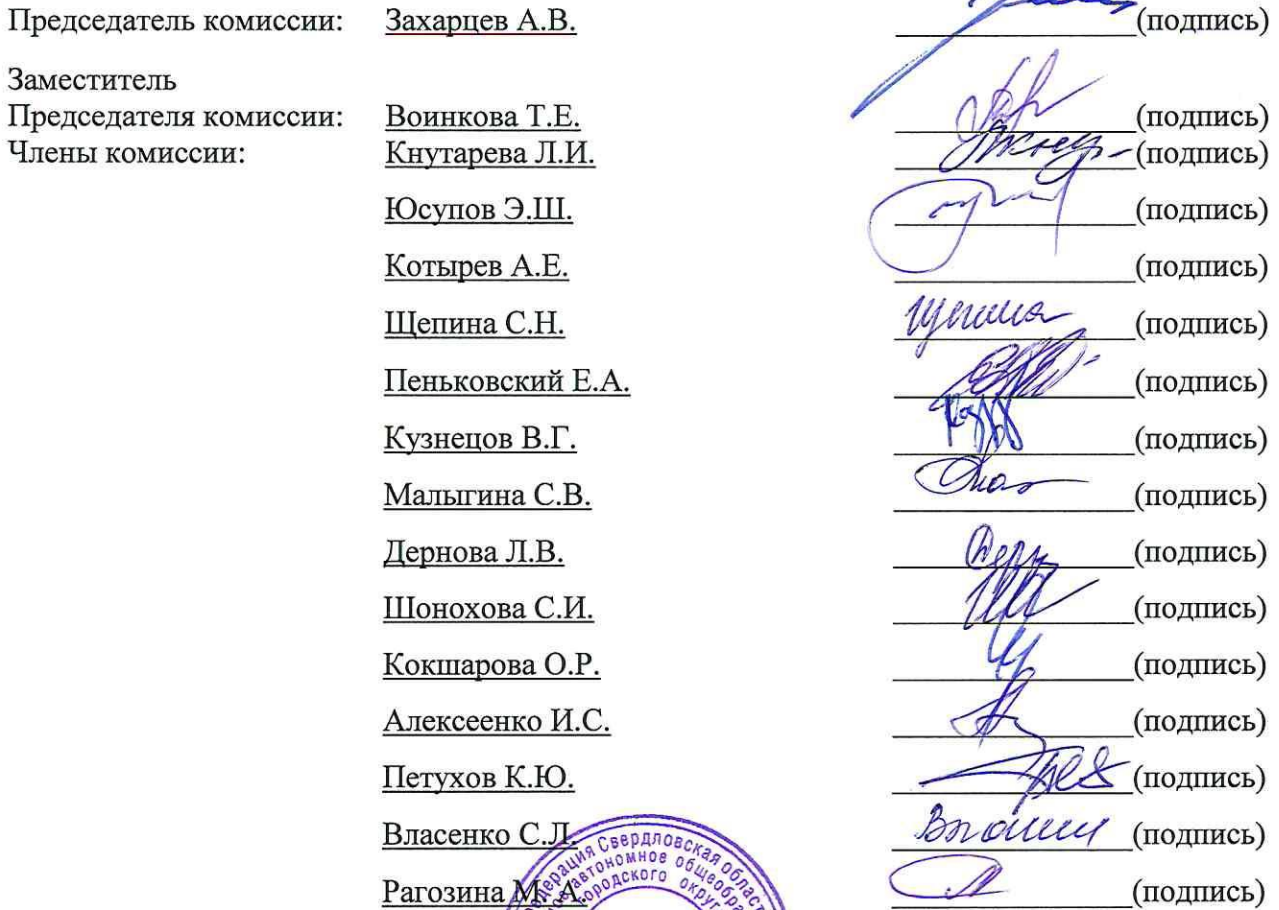 Председатель комиссии: Захарцев А.В. (подпись)
Заместитель
Председателя комиссии: Воинкова Т.Е. (подпись)
Члены комиссии: Кнутарева Л.И. (подпись)
Юсупов Э.Ш. (подпись)
Котырев А.Е. (подпись)
Щепина С.Н. Щепина (подпись)
Пеньковский Е.А. (подпись)
Кузнецов В.Г. (подпись)
Малыгина С.В. (подпись)
Дернова Л.В. (подпись)
Шонохова С.И. (подпись)
Кокшарова О.Р. (подпись)
Алексеенко И.С. (подпись)
Петухов К.Ю. (подпись)
Власенко С.Л. (подпись)
Рагозина М.А. (подпись)
Свердловская
автономное
городского